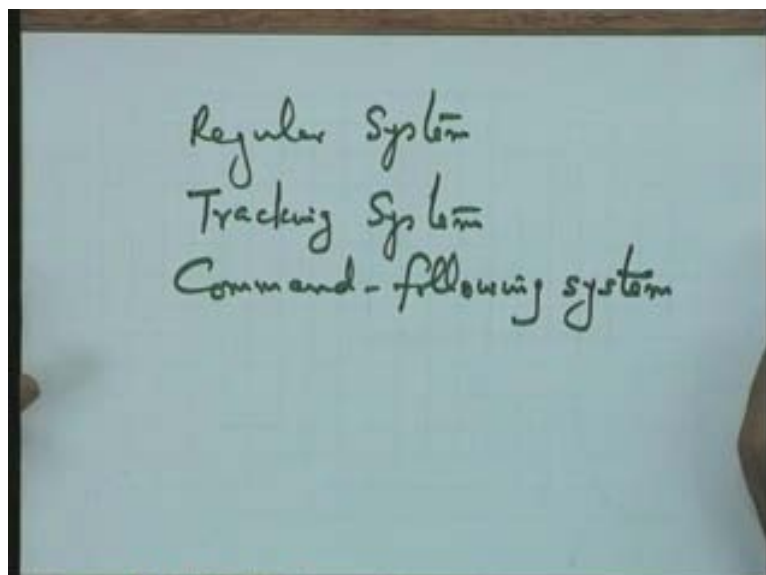 Regular System
Tracking System
Command-following system